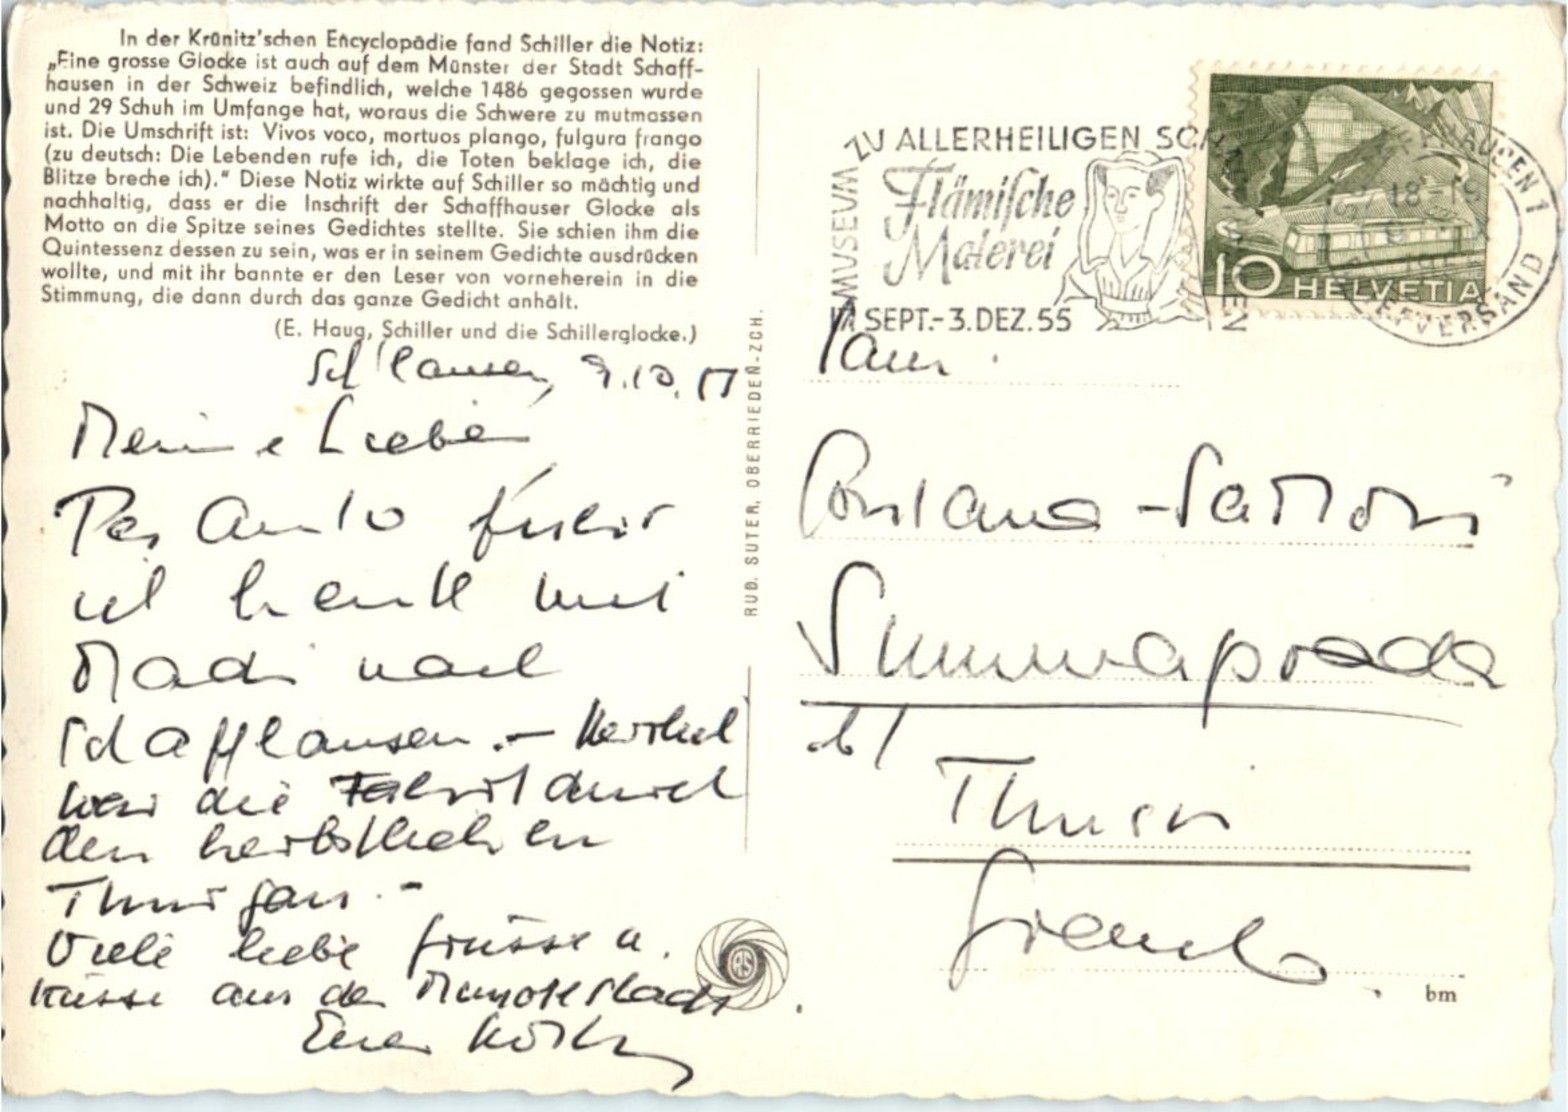 In der Krünitz'schen Encyclopädie fand Schiller die Notiz:
„Eine grosse Glocke ist auch auf dem Münster der Stadt Schaff-
hausen in der Schweiz befindlich, welche 1486 gegossen wurde
und 29 Schuh im Umfange hat, woraus die Schwere zu mutmassen
ist. Die Umschrift ist: Vivos voco, mortuos plango, fulgura frango
(zu deutsch: Die Lebenden rufe ich, die Toten beklage ich, die
Blitze breche ich)." Diese Notiz wirkte auf Schiller so mächtig und
nachhaltig, dass er die Inschrift der Schaffhauser Glocke als
Motto an die Spitze seines Gedichtes stellte. Sie schien ihm die
Quintessenz dessen zu sein, was er in seinem Gedichte ausdrücken
wollte, und mit ihr bannte er den Leser von vorneherein in die
Stimmung, die dann durch das ganze Gedicht anhält.
(E. Haug, Schiller und die Schillerglocke.)
Sch'hausen, 9.10.55
Meine Lieben
Per Auto fuhr
ich heute mit
Madi nach
Schaffhausen. – Herrlich
war die Fahrt durch
den herbstlichen
Thurgau. –
Viele liebe Grüsse u.
Küsse aus der
Euer
RUD. SUTER, OBERRIEDEN-ZCH.
RS
MUSEUM ZU ALLERHEILIGEN SCHAFFHAUSEN
Flämische
Malerei
SEPT.-3. DEZ. 55
SCHAFFHAUSEN 1
18-19
BRIEFVERSAND
10 HELVETIA
Fam.
Fontana-
Summaprada
b/
Thusis
Graub.
bm